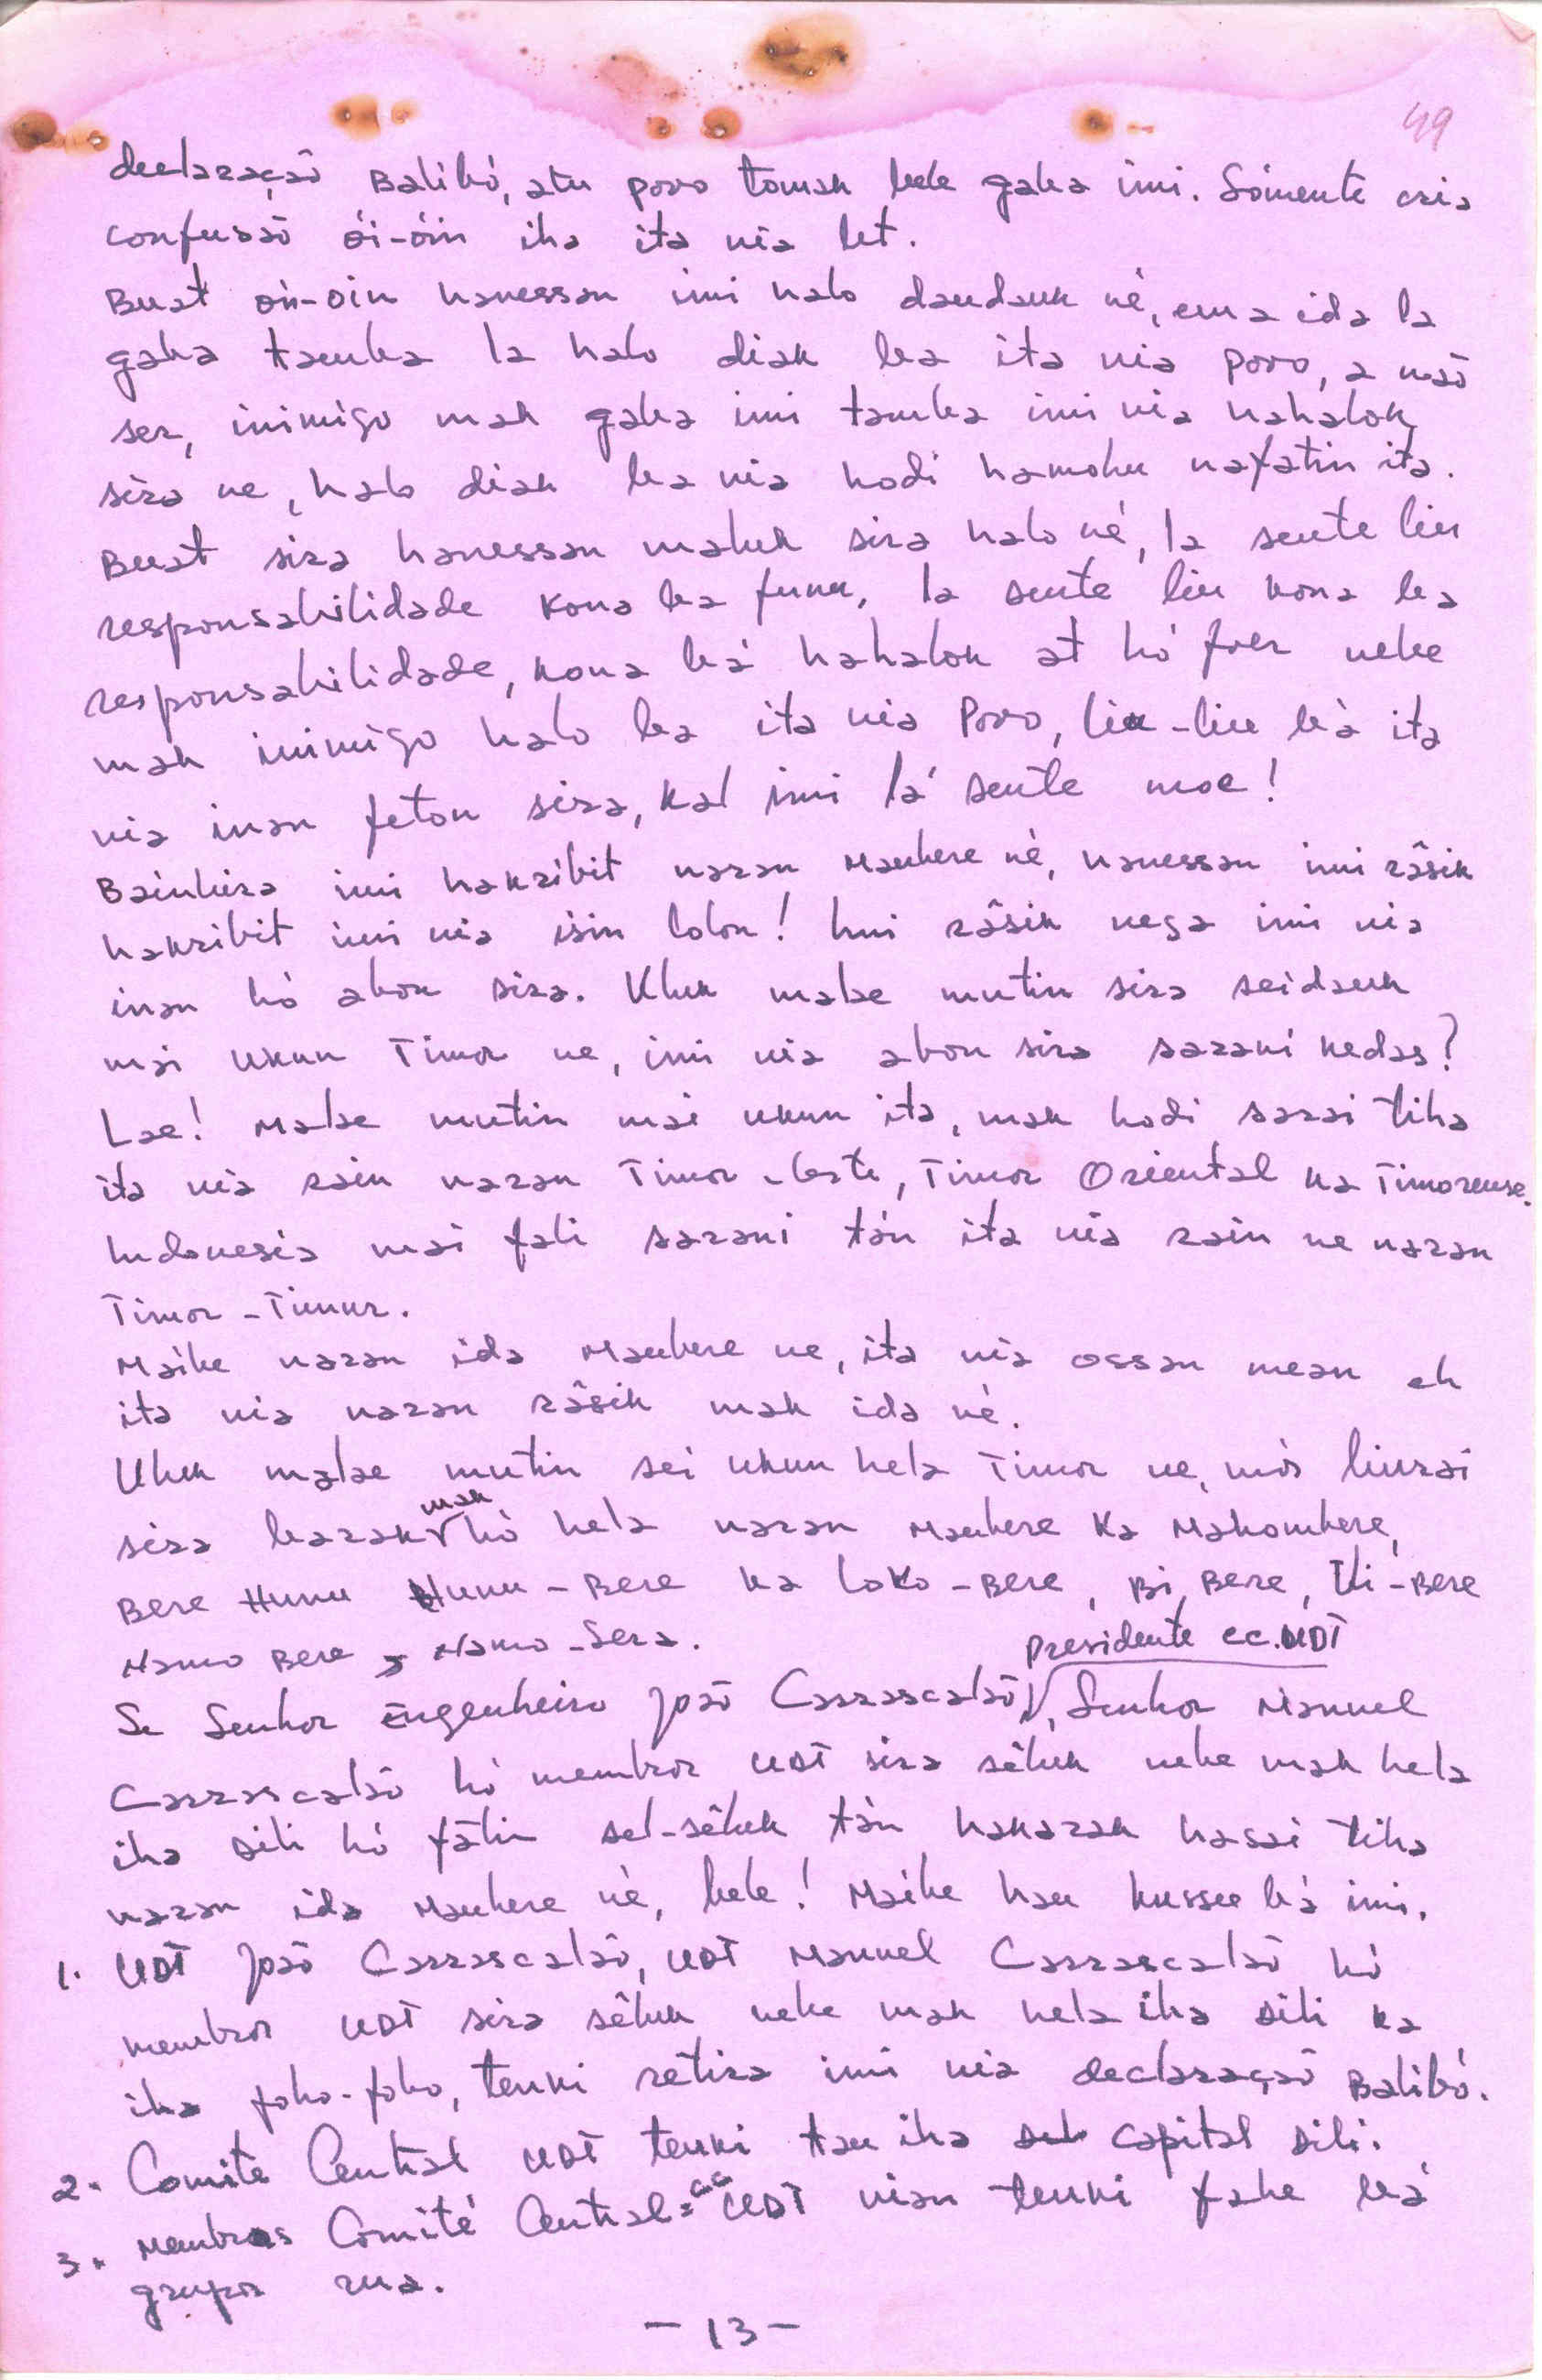 49
declaração Balibó, atu povo tomak bele gaba imi. Sómente cria
confusaõ ói-óin iha ita nia let.
Buat oin-oin hanessan imi halo daudauk né, ema ida la
gaba tamba la halo diak ba ita nia povo, a naõ
ser, inimigo mak gaba imi tamba imi nia hahalok
sira ne, halo diak ba nia hodi hamohu nafatin ita.
Buat sira hanessan maluk sira halo né, la sente liu
responsabilidade kona ba funu, la sente liu kona ba
responsabilidade, kona bá hahalok at hó foer nebe
mak inimigo halo ba ita nia Povo, liu-liu bá ita
nia inan feton sira, kal imi lá sente moe!
Bainhira imi hakribit naran Maubere né, hanessan imi râsik
hakribit imi nia isin lolon! Imi râsik nega imi nia
inan hó abon sira. Uluk malae mutin sira seidauk
mai ukun Timor ne, imi nia abon sira sarani kedas?
Lae! Malae mutin mai ukun ita, mak hodi sarai tiha
ita nia rain naran Timor-Leste, Timor Oriental ka Timorense.
Indonesia mai fali sarani tán ita nia rain ne naran
Timor-Timur.
Maibe naran ida Maubere ne, ita nia ossan mean eh
ita nia naran râsik mak ida né.
Uluk malae mutin sei ukun hela Timor ne, mós liurai
sira barak mak hó hela naran Maubere ka Makombere,
Bere Hunu Hunu-Bere ka Loko-Bere, Bi Bere, Ili-Bere
Namo Bere, Namo-Sera.
Se Senhor Engenheiro Joaõ Carrascalaõ, presidente cc.UDT, Senhor Manuel
Carrascalaõ hó membror UDT sira sêluk nebe mak hela
iha Dili hó fâtin sel-sêluk tán hakarak hasai tiha
naran ida Maubere né, bele! Maibe hau hussu bá imi.
1. UDT Joaõ Carrascalaõ, UDT Manuel Carrascalaõ hó
membror UDT sira sêluk nebe mak hela iha Dili ka
iha foho-foho, tenki retira imi nia declaraçaõ Balibó.
2. Comite Central UDT tenki tau iha capital Dili.
3. Membros Comité Central = CC UDT nian tenki fahe bá
grupor rua.
- 13 -